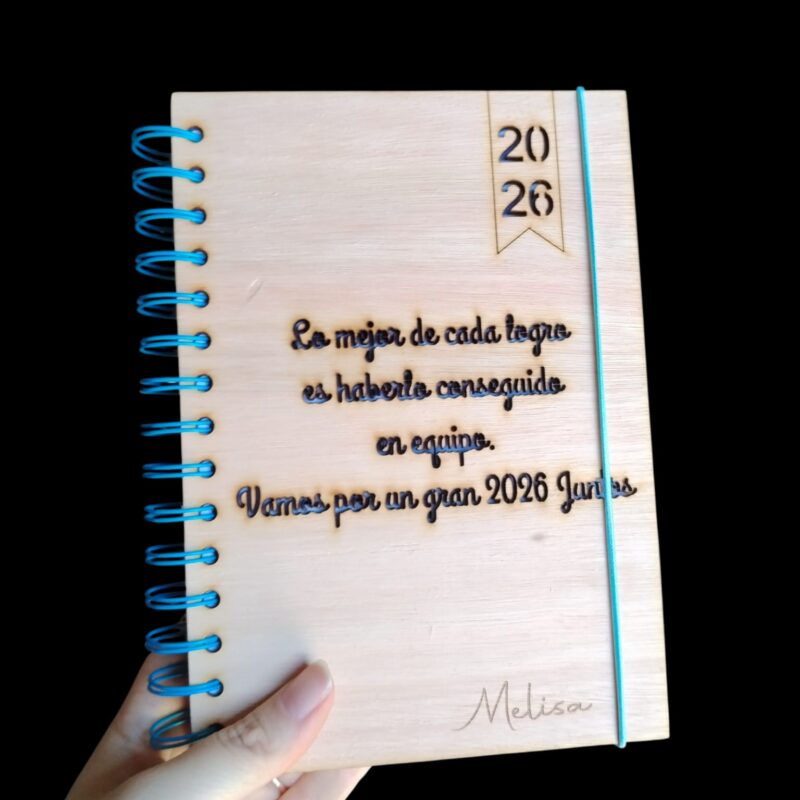 20
26
Lo mejor de cada logro
es haberlo conseguido
en equipo.
Vamos por un gran 2026 Juntos
Melisa